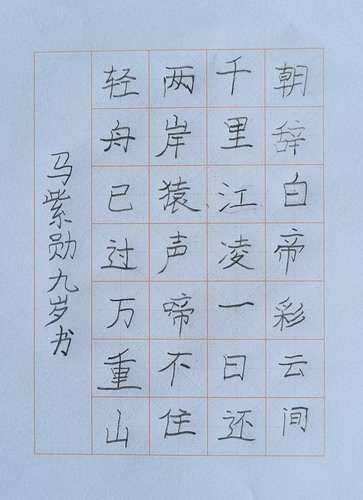 朝辞白帝彩云间
千里江凌一日还
两岸猿声啼不住
轻舟已过万重山
马紫勋九岁书